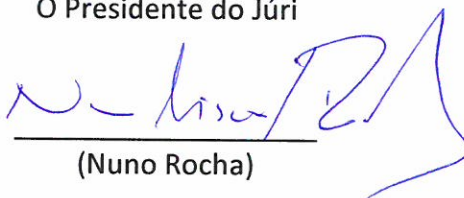 O Presidente do Júri
(Nuno Rocha)